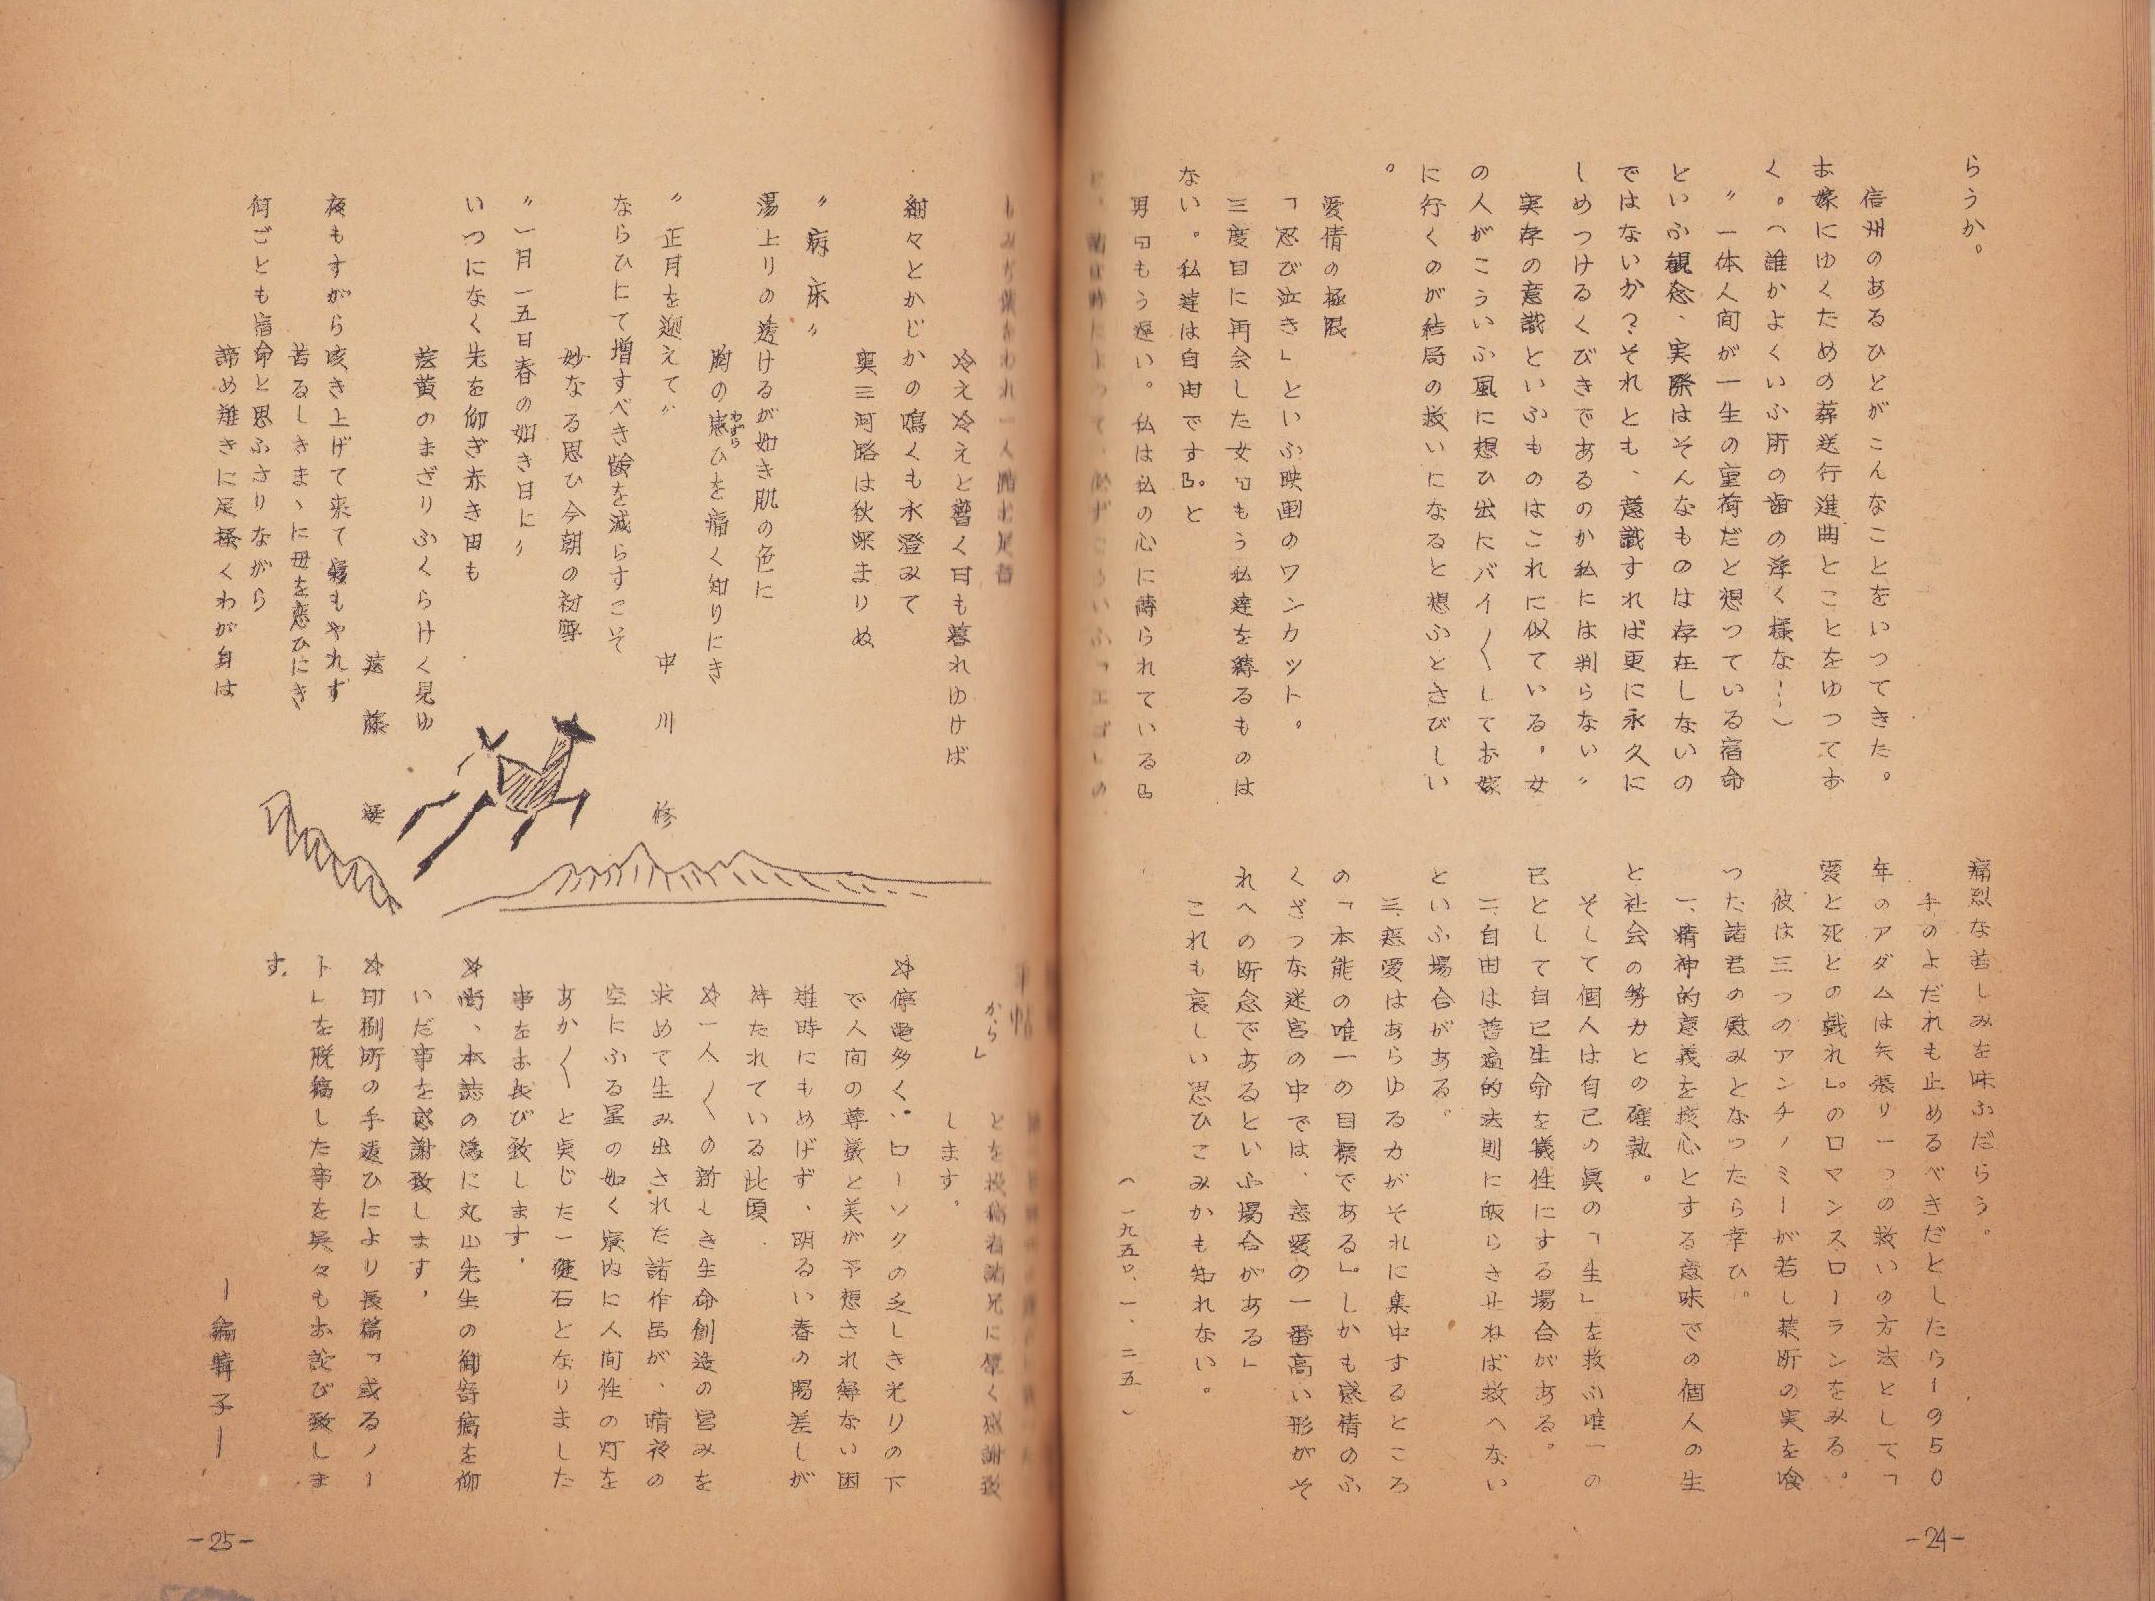 らうか。
信州のあるひとがこんなことをいつてきた。
お嫁にゆくための葬送行進曲とことをゆつてお
く。(誰かよくいふ所の歯の浮く様な！…)
〃一体人间が一生の重荷だと想つている宿命
といふ観念、実際はそんなものは存在しないの
ではないか？それとも、意識すれば更に永久に
しめつけるくびきであるのか私には判らない〃
実存の意識といふものはこれに似ている，女
の人がこういふ風に想ひ出にバイ〳〵してお嫁
に行くのが結局の救いになると想ふとさびしい
。
愛情の極限
「忍び泣き」といふ映画のワンカット。
三度目に再会した女『もう私達を縛るものは
ない。私達は自由です』。と
男『もう遅い。私は私の心に縛られている』
痛烈な苦しみを味ふだらう。
手のよだれも止めるべきだとしたら1950
年のアダムは矢張り一つの救いの方法として「
愛と死との戯れ」。のロマンスローランをみる。
彼は三つのアンチノミーが若し禁断の実を喰
つた諸君の慰みとなつたら幸ひ。
一、精神的意義を核心とする意味での個人の生
と社会の勢力との確執。
そして個人は自己の眞の「生」を救ふ唯一の
己として自己生命を儀性にする場合がある。
二、自由は普遍的法則に皈らさせねば救へない
といふ場合がある。
三、恋愛はあらゆる力がそれに集中するところ
の「本能の唯一の目標である」しかも感情のふ
くざつな迷宮の中では、恋愛の一番高い形がそ
れへの断念であるといふ場合がある」
これも哀しい思ひこみかも知れない。
(一九五〇、一、二五)
-24-
冷え冷えと響く日も暮れゆけば
紺々とかじかの鳴くも水澄みて
奥三河路は秋深まりぬ
〃病床〃
湯上りの透けるが如き肌の色に
胸の患ひを痛く知りにき
わずら
〃正月を迎えて〃
中川 修
ならひにて増すべき齢を減らすこそ
妙なる思ひ今朝の初雪
〃一月一五日春の如き日に〃
いつになく先を仰ぎ赤き田も
蒼黄のまざりふくらけく見ゆ
遠藤
夜もすがら咳き上げて来て寝もやれず
苦るしきまゝに母を恋ひにき
何ごとも宿命と思ふさりながら
諦め難きに足掻くわが身は
から」
とを投稿者諸兄に厚く感謝致
します。
☆停電多く、ローソクの乏しき光りの下
で人间の尊厳と美が予想され得ない困
難時にもめげず、明るい春の陽差しが
待たれている此頃
☆一人〳〵の新しき生命創造の営みを
求めて生み出された諸作品が、晴夜の
空にふる星の如く寮内に人间性の灯を
あか〳〵と点じた一礎石となりました
事をお歓び致します，
☆尚、本誌の為に丸山先生の御寄稿を仰
いだ事を感謝致します，
☆印刷所の手違ひにより長篇「或るノー
ト」を脱稿した事を呉々もお詫び致しま
す．
ー編輯子ー
-25-